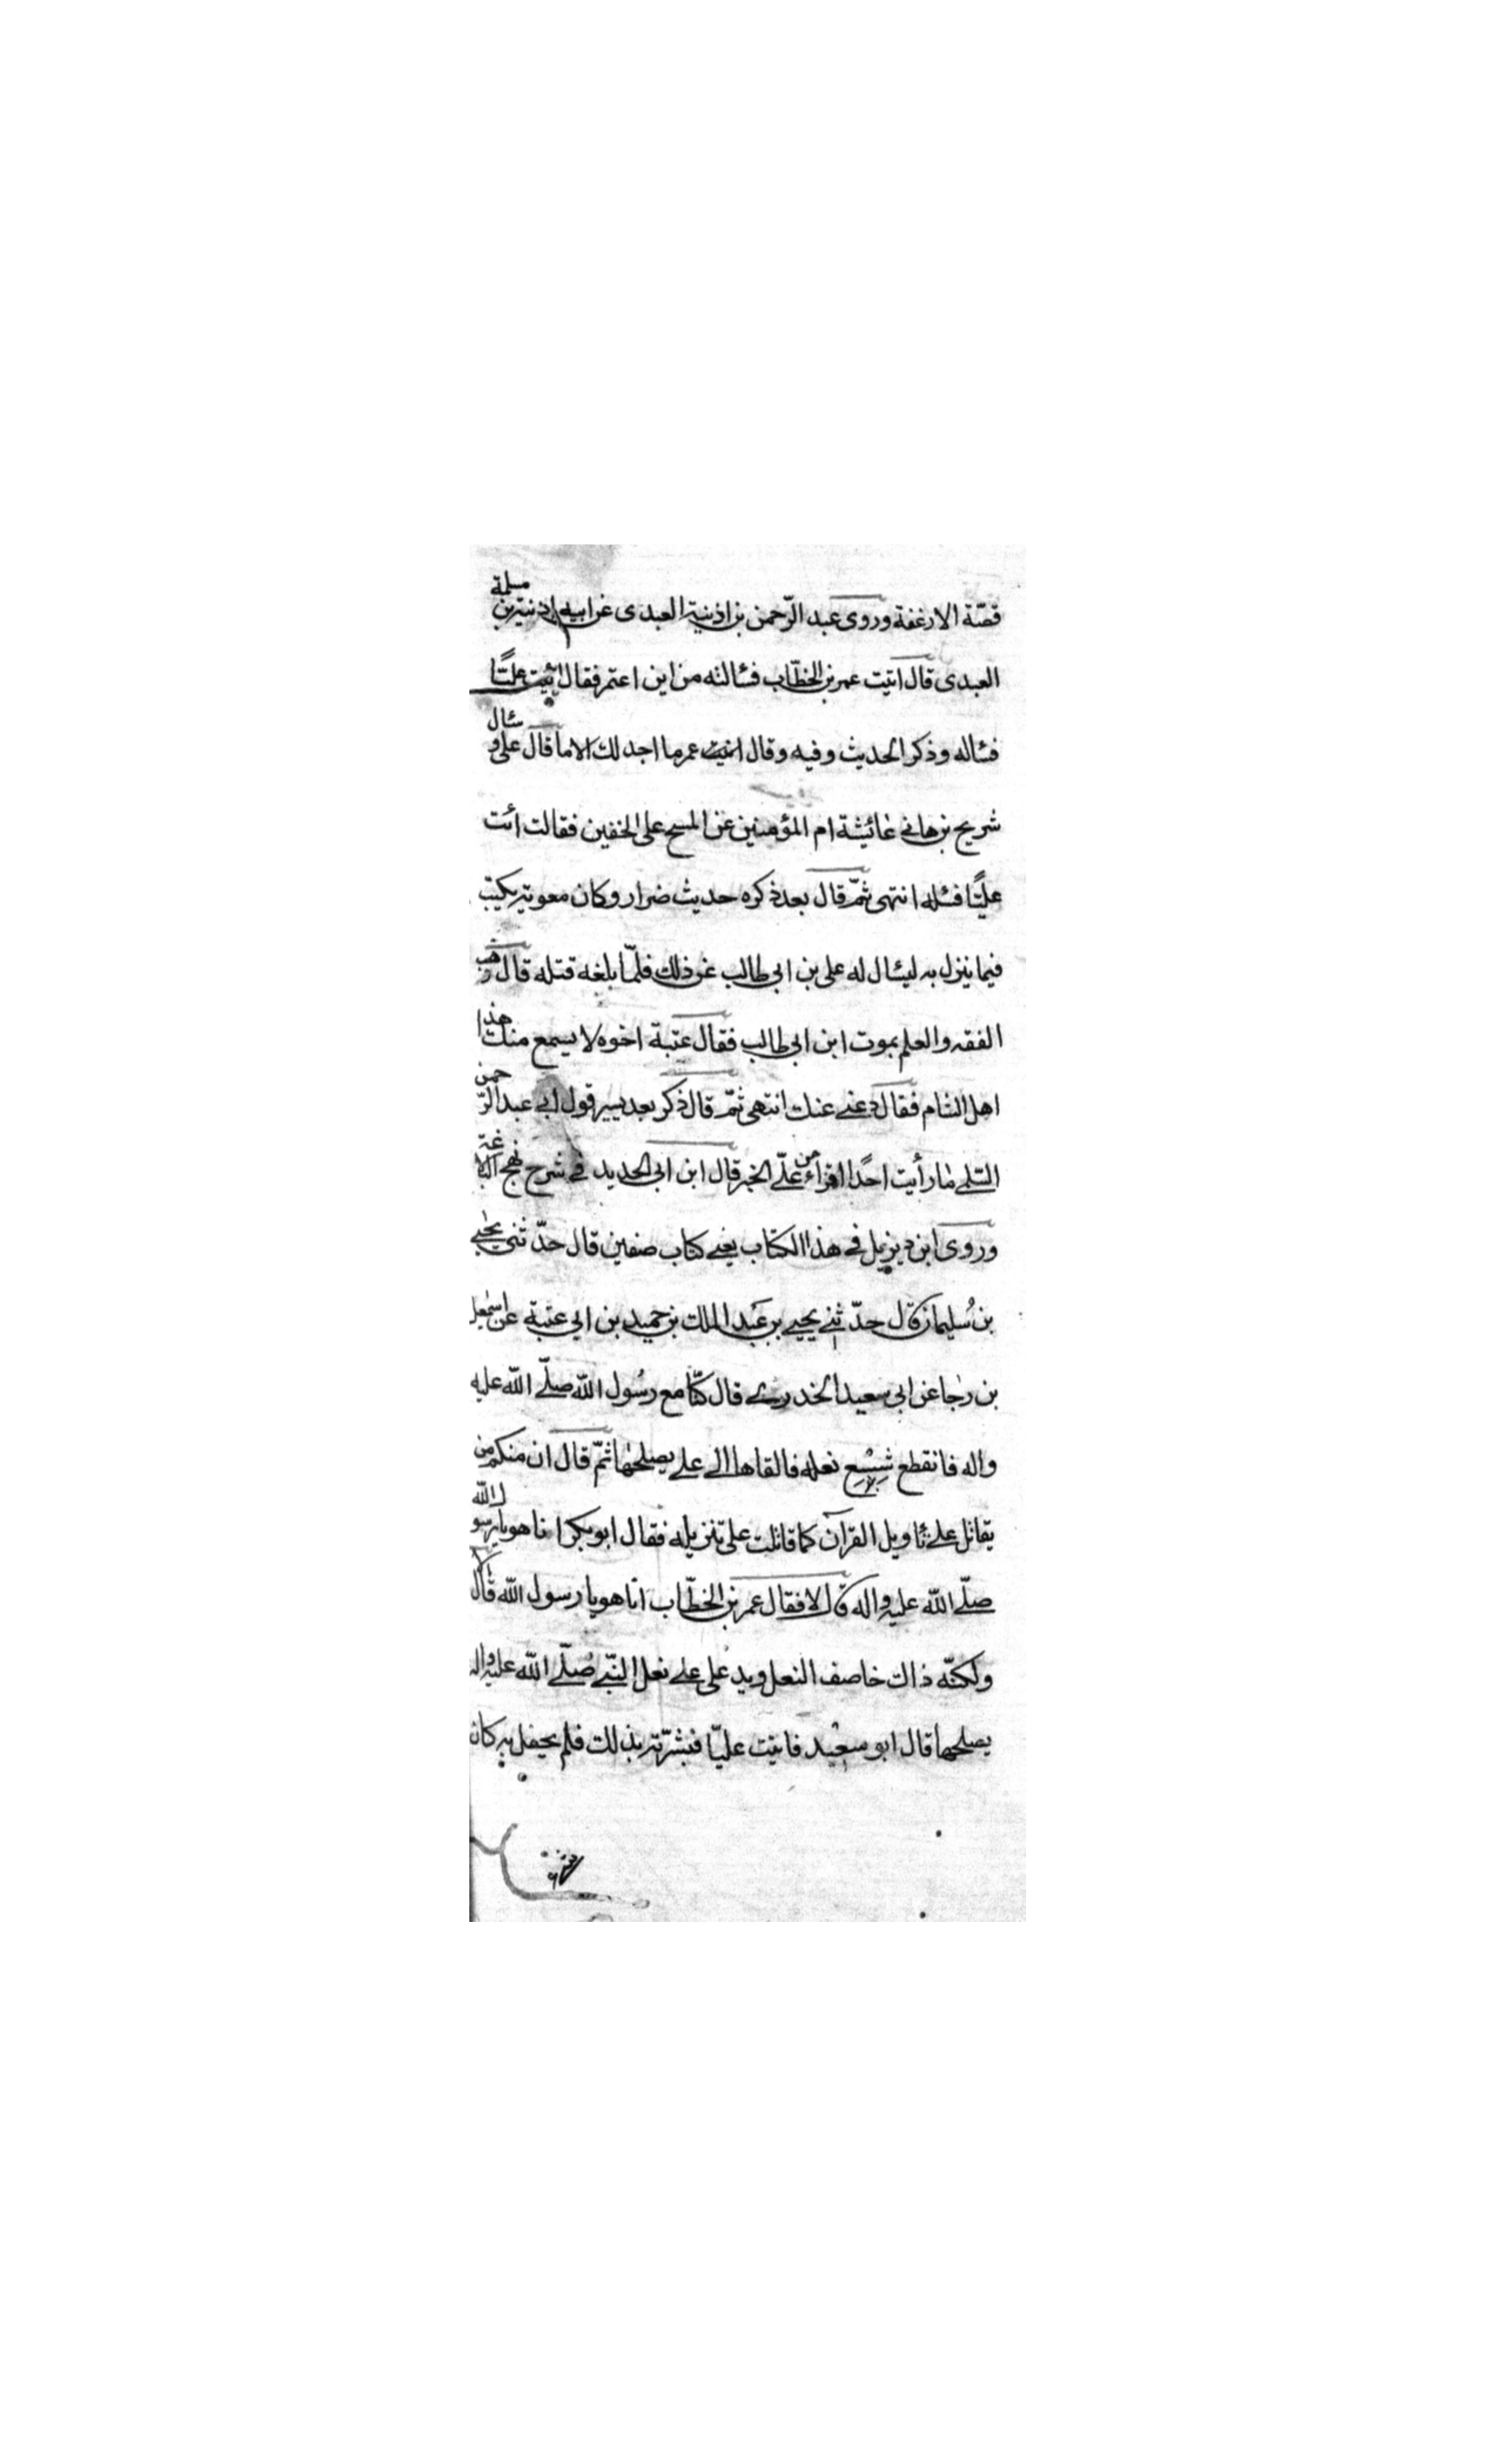 قصّة الارغفة وروى عبد الرّحمن بن اذنية العبدى عن ابيه اذنية بن مسلمة
العبدى قال اتيت عمر بن الخطّاب فسئالته من اين اعتمر فقال ائيت عليّا
فسئاله وذكر الحديث وفيه وقال اتيت عمر ما اجد لك الا ما قال على و سئال
شريح بن هانى عائيشة ام المؤمنين عن المسح على الخفين فقالت ائت
عليّا فسئله انتهى ثمّ قال بعد ذكره حديث ضرار وكان معوية يكتب
فيما ينزل به ليسئال له على بن ابى طالب عن ذلك فلمّا بلغه قتله قال ذهب
الفقه والعلم بموت ابن ابى طالب فقال عتبة اخوه لا يسمع منك هذا
اهل الشام فقال دعنى عنك انتهى ثمّ قال ذكر بعد يسير قول ابى عبد الرّحمن
السّلمى ما رأيت احدًا اقراء من علىّ الخبر قال ابن ابى الحديد فى شرح نهج البلاغة
وروى ابن ديزيل فى هذا الكتاب يعنى كتاب صفين قال حدّثنى يحيى
بن سُليمان قال حدّثنى يحيى بن عَبد الملك بن حميد بن ابى عتبة عن اسمعيل
بن رجا عن ابى سعيد الخدرى قال كنّا مع رسُول الله صلّى الله عليه
واله فانقطع شِسْع نعله فالقاها الى على يصلحها ثمّ قال ان منكم من
يقاتل على تاويل القرآن كما قاتلت على تنزيله فقال ابو بكر انا هو يا رسول الله
صلّى الله عليه واله قال لا فقال عمر بن الخطّاب انا هو يا رسول الله قال لا
ولكنّه ذاك خاصف النعل ويد على على نعل النّبى صُلّى الله عليه واله
يصلحها قال ابو سعيد فاتيت عليّا فبشّرته بذلك فلم يحفل به كان